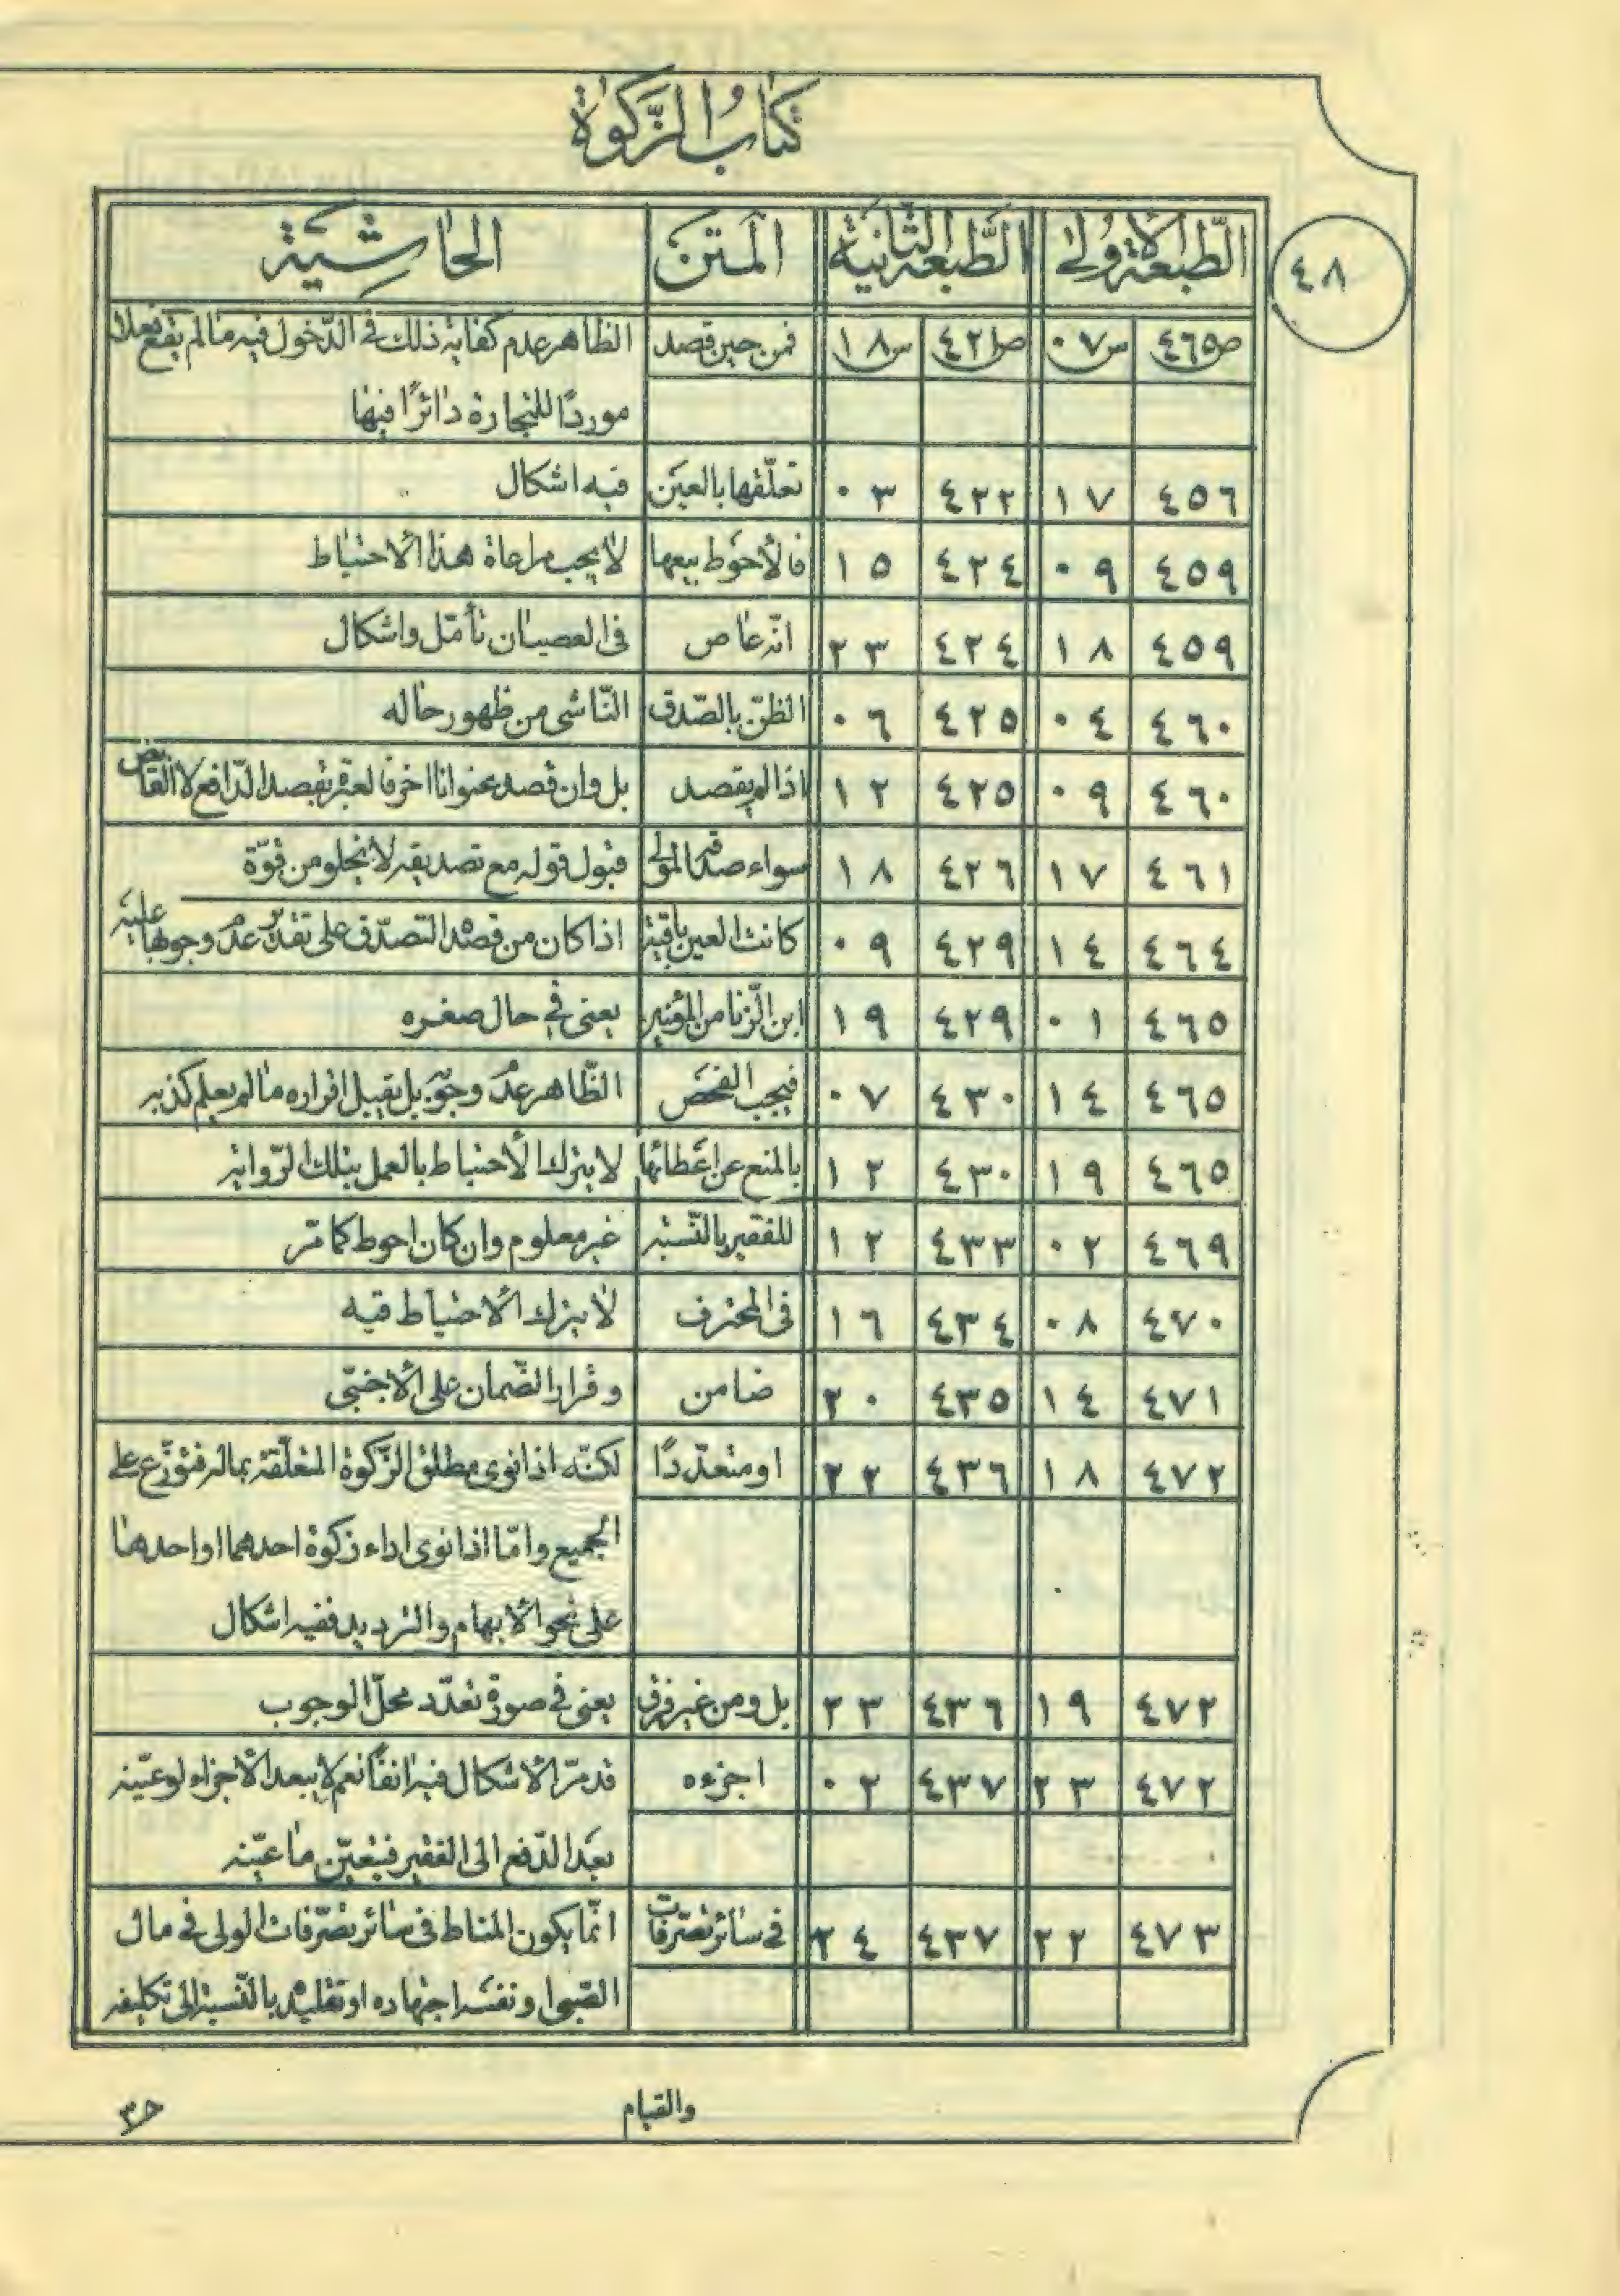 كتاب الزكوة
٤٨
الطبعة الاولى الطبعة الثانية المتن الحاشية
ص٤٦٥ س٠٧ ص٤٢١ س١٨ فمن حين قصد الظاهر عدم كفاية ذلك فى الدخول فيه ما لم يقع فعلا
موردًا للتجارة دائرًا فيها
٤٥٦ ١٧ ٤٢٢ ٠٣ تعلّقها بالعين فيه اشكال
٤٥٩ ٠٩ ٤٢٤ ١٥ فالأحوط بيعها لا يجب مراعاة هذا الاحتياط
٤٥٩ ١٨ ٤٢٤ ٢٣ انّه عاص فى العصيان تأمّل واشكال
٤٦٠ ٠٤ ٤٢٥ ٠٦ الظنّ بالصّدق النّاشى من ظهور حاله
٤٦٠ ٠٩ ٤٢٥ ١٢ اذا لم يقصد بل وان قصد عنوانا اخر فالعبرة بقصد الدّافع لا القابض
٤٦١ ١٧ ٤٢٦ ١٨ سواء صدقه المولى قبول قوله مع تصديقه لا يخلو من قوّة
٤٦٤ ١٤ ٤٢٩ ٠٩ كانت العين باقية اذا كان من قصده التصدّق على تقدير عدم وجوبها عليه
٤٦٥ ٠١ ٤٢٩ ١٩ ابن الزّنا من المؤمنين يعنى فى حال صغره
٤٦٥ ١٤ ٤٣٠ ٠٧ فيجب الفحص الظّاهر عدم وجوبه بل يقبل اقراره ما لم يعلم كذبه
٤٦٥ ١٩ ٤٣٠ ١٢ بالمنع عن اعطائها لا يترك الأحتياط بالعمل بتلك الرّواية
٤٦٩ ٠٢ ٤٣٣ ١٢ للفقير بالنّسبة غير معلوم وان كان احوط كما مرّ
٤٧٠ ٠٨ ٤٣٤ ١٦ فى المحترف لا يترك الاحتياط فيه
٤٧١ ١٤ ٤٣٥ ٢٠ ضامن وقرار الضّمان على الأجنبّى
٤٧٢ ١٨ ٤٣٦ ٢٢ او متعدّدًا لكنّه اذا نوى مطلق الزّكوة المتعلّقة بماله فتوزّع على
الجميع وامّا اذا نوى اداء زكوة احدهما او احدها
على نحو الأبهام والترديد ففيه اشكال
٤٧٢ ١٩ ٤٣٦ ٢٣ بل ومن غير فرق يعنى فى صورة تعدّد محلّ الوجوب
٤٧٢ ٢٣ ٤٣٧ ٠٢ اجزءه قد مرّ الأشكال فيه انفًا نعم لا يبعد الأجزاء لو عيّنه
بعد الدّفع الى الفقير فيتعيّن ما عيّنه
٤٧٣ ٢٢ ٤٣٧ ٢٤ فى سائر تصرّفات انّما يكون المناط فى سائر تصرّفات الولى فى مال
الصّبى او نفسه اجتهاده او تقليده بالنّسبة الى تكليفه
والقيام